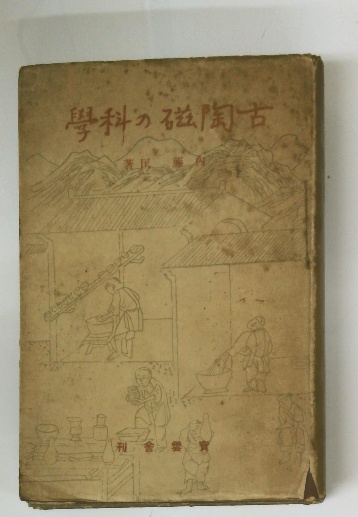 古陶磁の科學
內藤匡著
寶雲舍刊